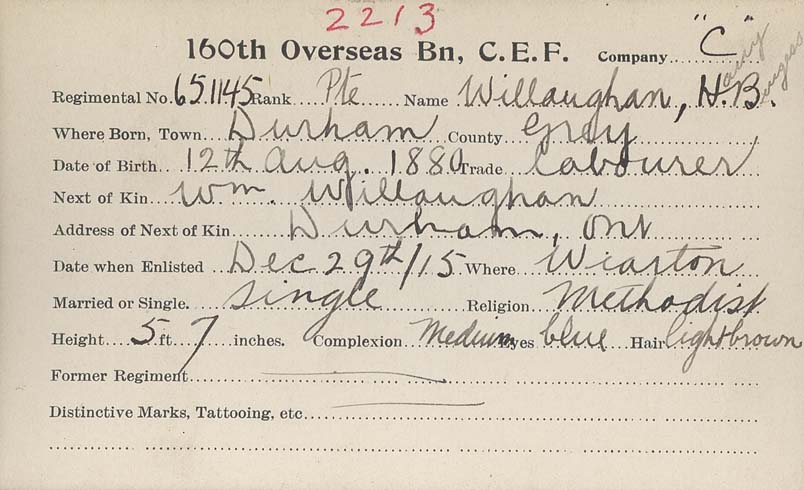 2213
160th Overseas Bn, C.E.F. Company "C"
Regimental No. 651145 Rank Pte Name Willaughan, H.B.
Where Born, Town Durham County Grey
Date of Birth 12th Aug. 1880 Trade Labourer
Next of Kin Wm. Willaughan
Address of Next of Kin Durham, Ont
Date when Enlisted Dec 29th/15 Where Wiarton
Married or Single. Single Religion Methodist
Height 5 ft 7 inches. Complexion Medium Eyes blue Hair light brown
Former Regiment
Distinctive Marks, Tattooing, etc